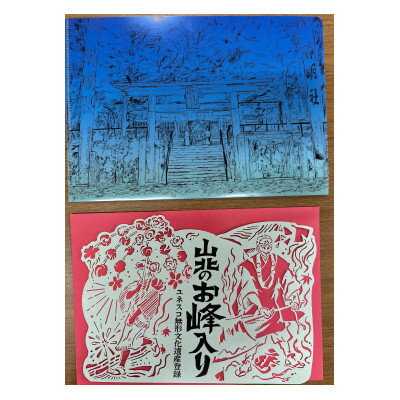 明社
山北のお峰入り
ユネスコ無形文化遺産登録